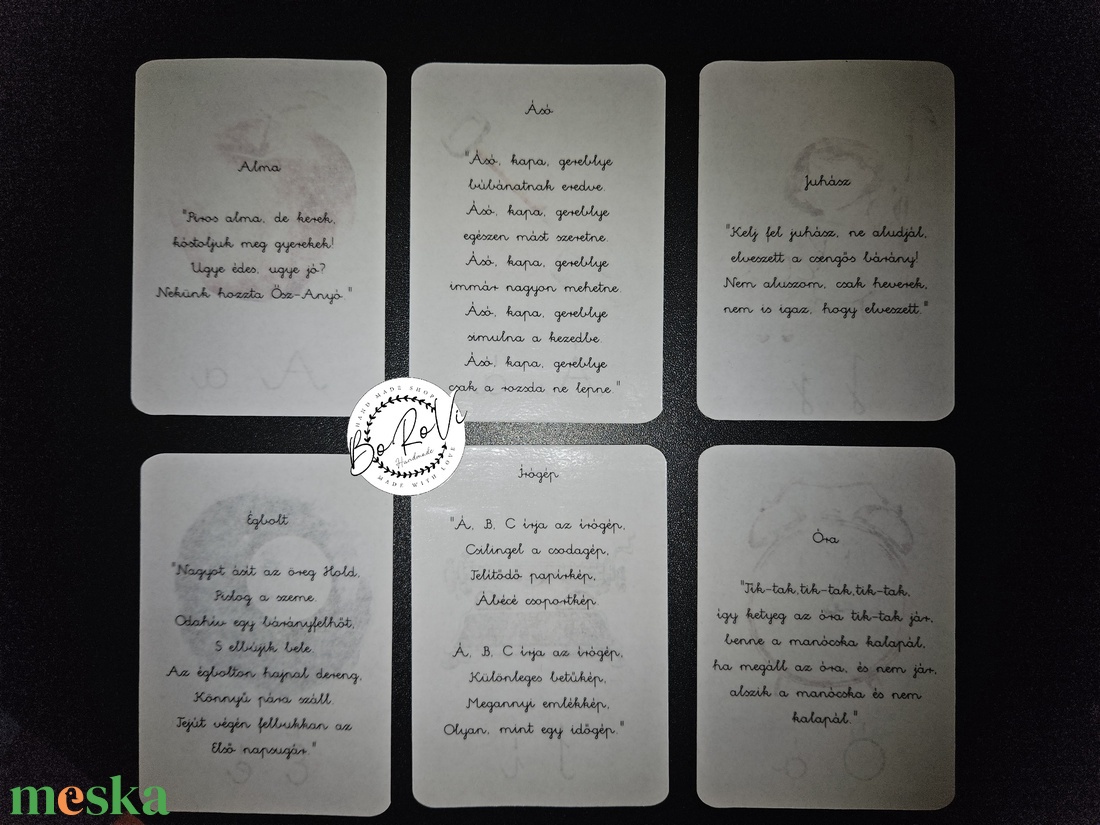 Alma
"Piros alma, de kerek,
kóstoljuk meg gyerekek!
Ugye édes, ugye jó?
Nekünk hozzta Ősz-Anyó."
Ásó
"Ásó, kapa, gereblye
búbánatnak eredve.
Ásó, kapa, gereblye
egészen mást szeretne.
Ásó, kapa, gereblye
immár nagyon mehetne.
Ásó, kapa, gereblye
simulna a kezedbe.
Ásó, kapa, gereblye
csak a rozsda ne lepne."
Juhász
"Kelj fel juhász, ne aludjál,
elveszett a csengős bárány!
Nem aluszom, csak heverek,
nem is igaz, hogy elveszett."
HAND MADE SHOP
BoRoVi
Handmade
MADE WITH LOVE
Égbolt
"Nagyot ásít az öreg Hold,
Pislog a szeme.
Odahív egy bárányfelhőt,
S elbújik bele.
Az égbolton hajnal dereng,
Könnyű pára száll.
Tejút végén felbukkan az
Első napsugár."
Írógép
"A, B, C írja az írógép,
Csilingel a csodagép,
Telítődő papírkép,
Ábécé csoportkép.
A, B, C írja az írógép,
Különleges betűkép,
Megannyi emlékkép,
Olyan, mint egy időgép."
Óra
"Tik-tak,tik-tak,tik-tak,
így ketyeg az óra tik-tak jár,
benne a manócska kalapál,
ha megáll az óra, és nem jár,
alszik a manócska és nem
kalapál."
meska